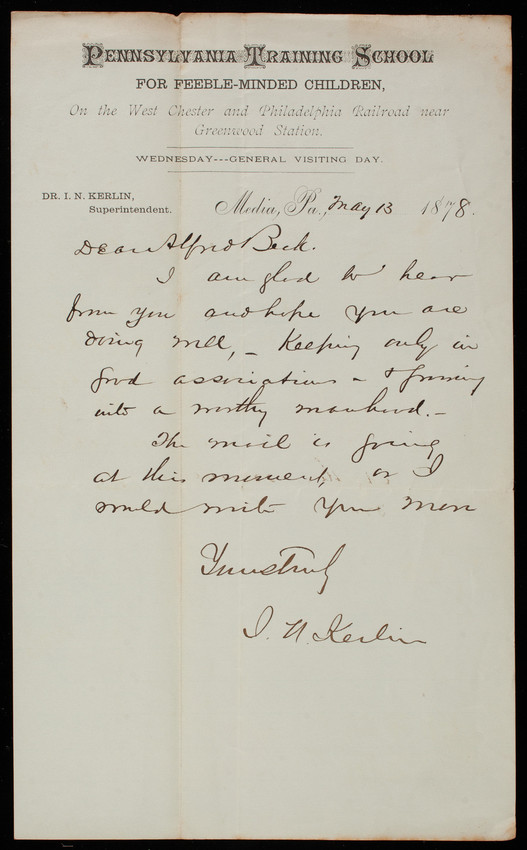 PENNSYLVANIA TRAINING SCHOOL
FOR FEEBLE-MINDED CHILDREN,
On the West Chester and Philadelphia Railroad near
Greenwood Station.
WEDNESDAY---GENERAL VISITING DAY.
DR. I. N. KERLIN,
Superintendent.
Media, Pa., May 13 1878.
Dear Alfred Beck.
I am glad to hear
from you and hope you are
doing well, - Keeping only in
good associations - & growing
into a worthy manhood. -
The mail is going
at this moment, or I
would write you more
Yours truly
I. N. Kerlin